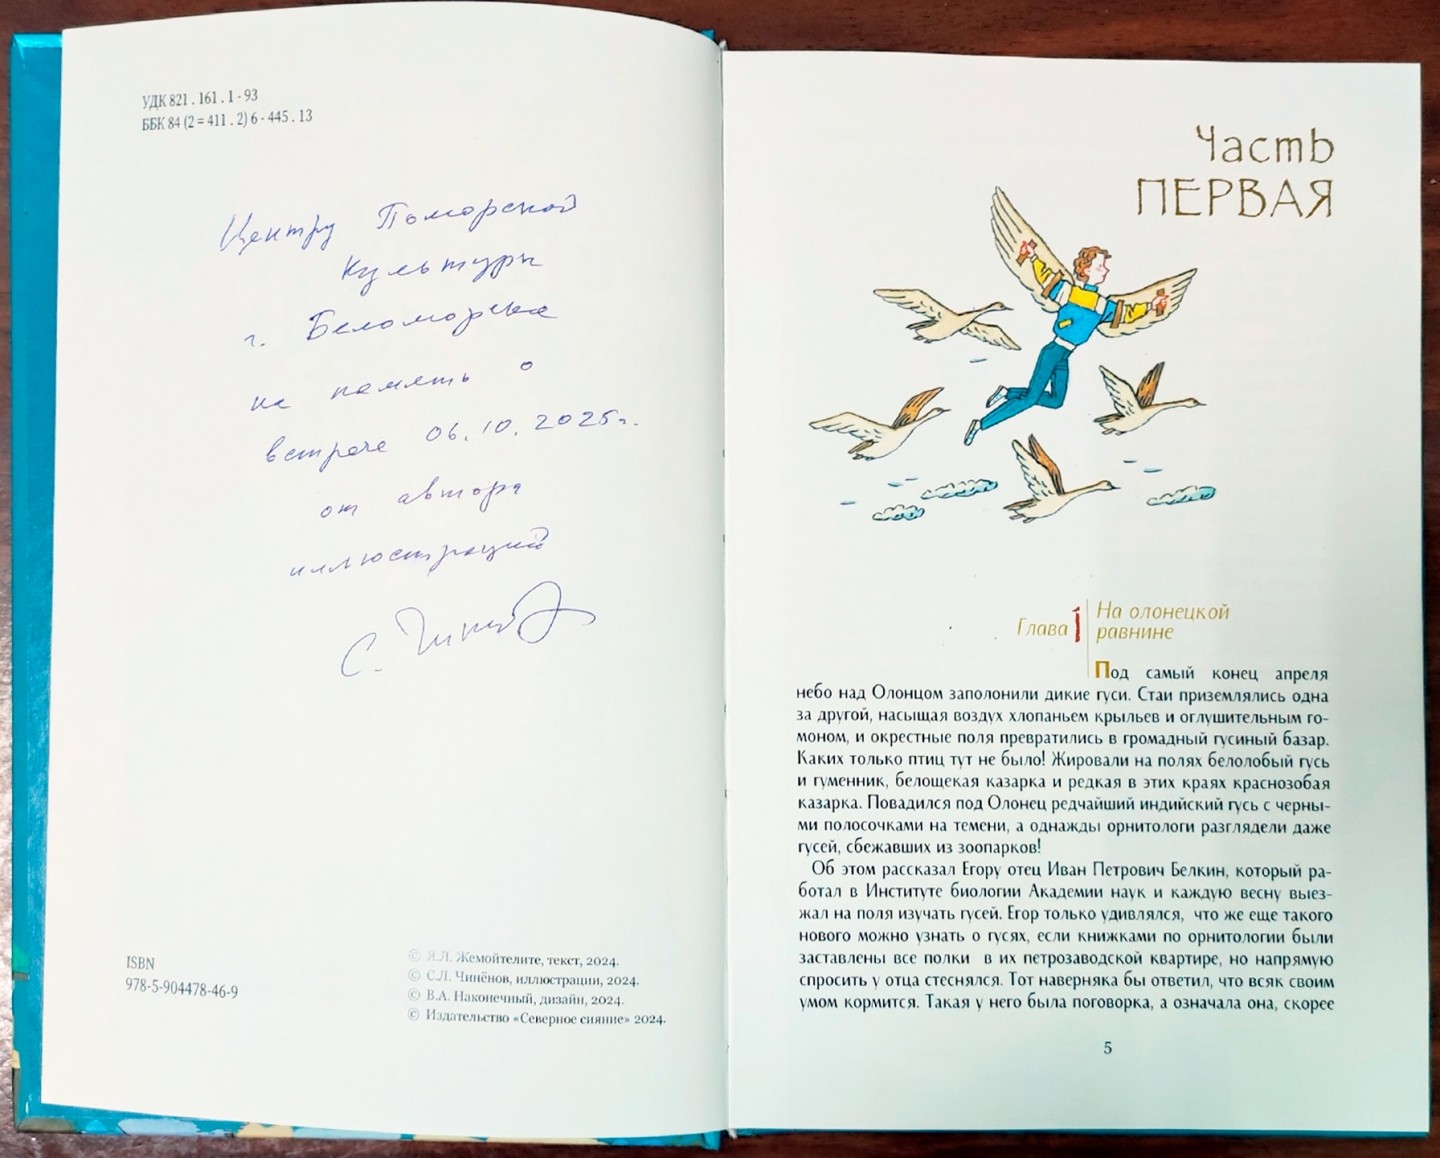 УДК 821 . 161 . 1 - 93
ББК 84 (2 = 411 . 2) 6 - 445 . 13
Центру Поморской
культуры
г. Беломорска
на память о
встрече 06.10.2025г.
от автора
иллюстраций
С. Чинёнов
ISBN
978-5-904478-46-9
© Я.Л. Жемойтелите, текст, 2024.
© С.Л. Чинёнов, иллюстрации, 2024.
© В.А. Наконечный, дизайн, 2024.
© Издательство «Северное сияние» 2024.
Часть
ПЕРВАЯ
Глава 1
На олонецкой
равнине
Под самый конец апреля
небо над Олонцом заполонили дикие гуси. Стаи приземлялись одна
за другой, насыщая воздух хлопаньем крыльев и оглушительным го-
моном, и окрестные поля превратились в громадный гусиный базар.
Каких только птиц тут не было! Жировали на полях белолобый гусь
и гуменник, белощекая казарка и редкая в этих краях краснозобая
казарка. Повадился под Олонец редчайший индийский гусь с черны-
ми полосочками на темени, а однажды орнитологи разглядели даже
гусей, сбежавших из зоопарков!
Об этом рассказал Егору отец Иван Петрович Белкин, который ра-
ботал в Институте биологии Академии наук и каждую весну выез-
жал на поля изучать гусей. Егор только удивлялся, что же еще такого
нового можно узнать о гусях, если книжками по орнитологии были
заставлены все полки в их петрозаводской квартире, но напрямую
спросить у отца стеснялся. Тот наверняка бы ответил, что всяк своим
умом кормится. Такая у него была поговорка, а означала она, скорее
5